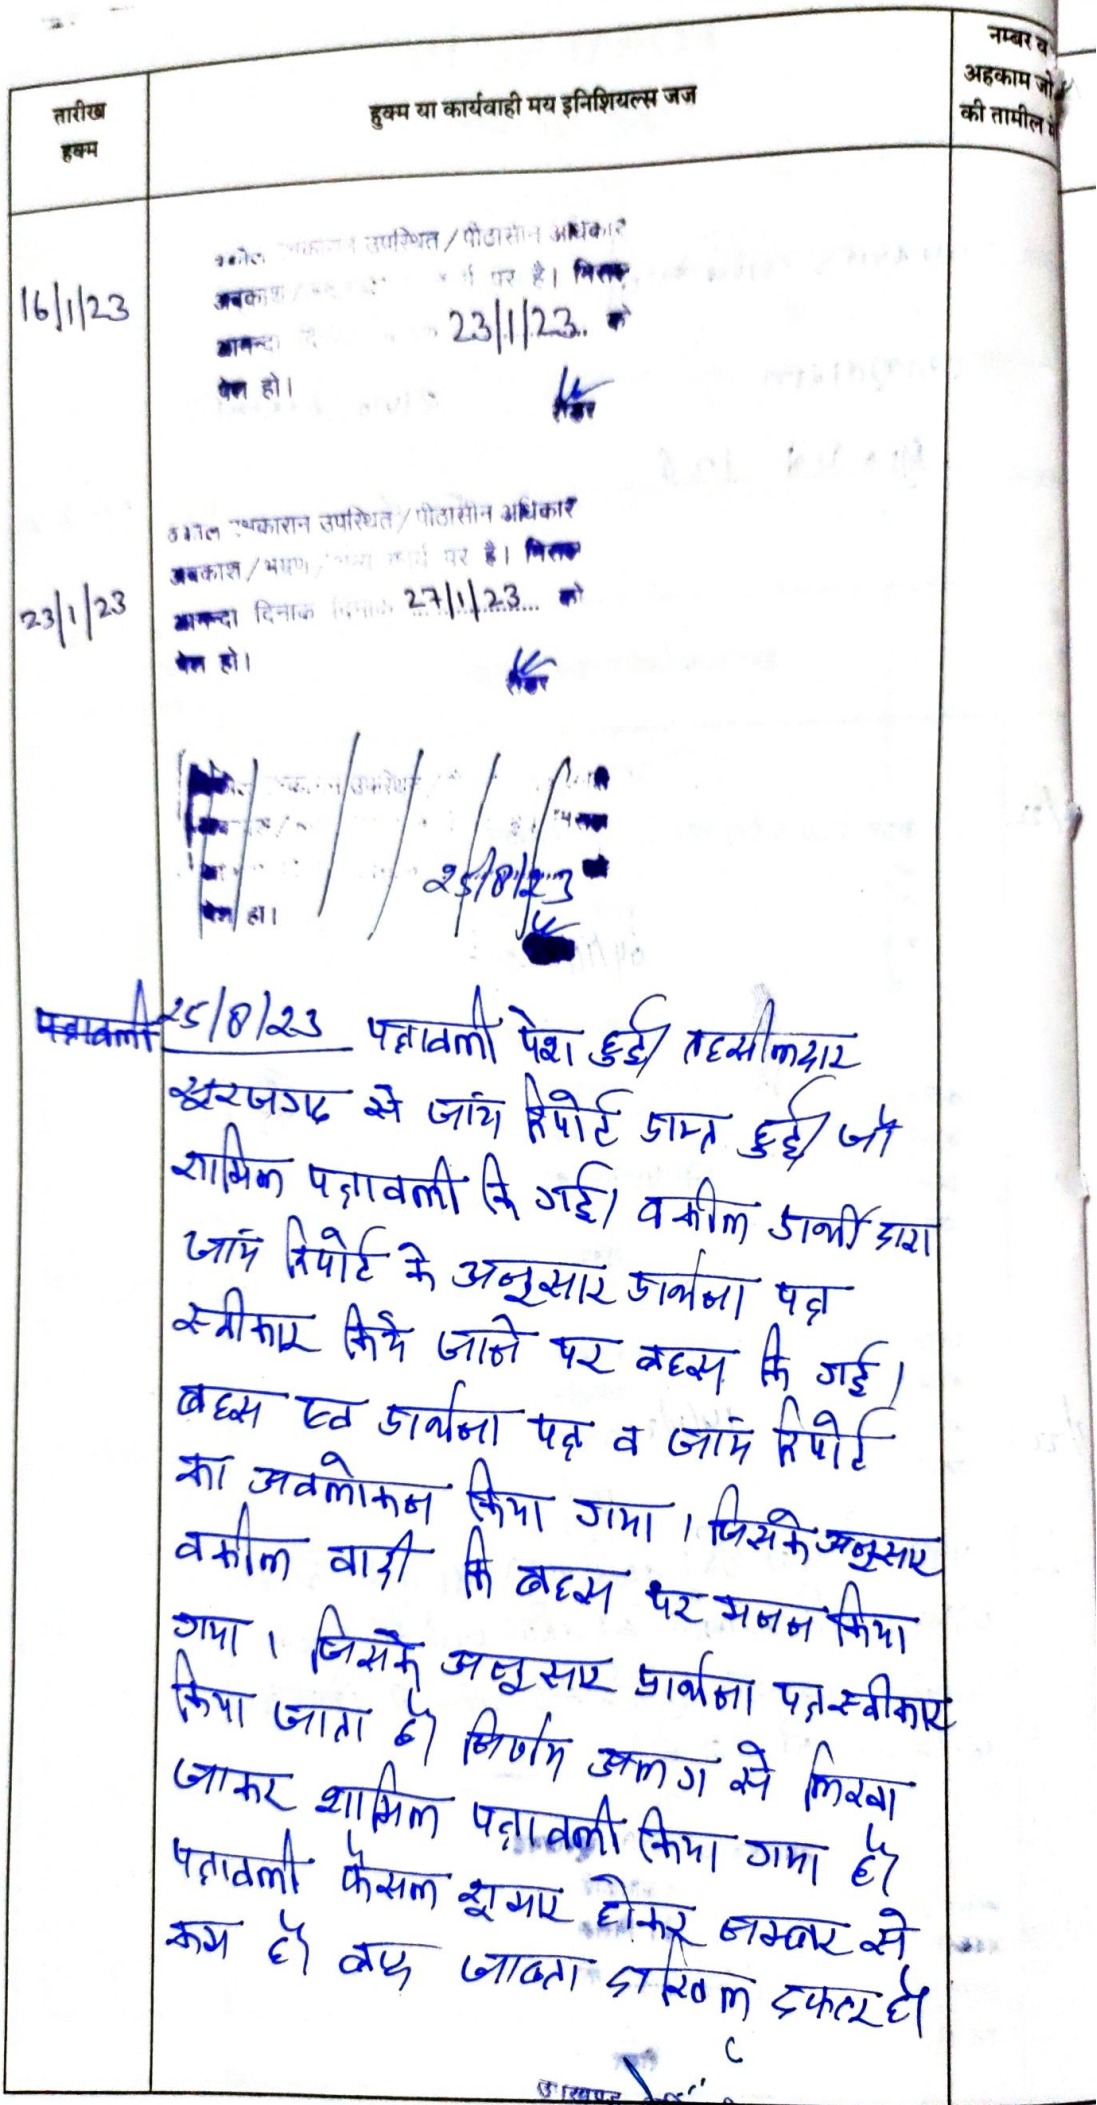 नम्बर व
अहकाम जो
की तामील में
तारीख
हुक्म
हुक्म या कार्यवाही मय इनिशियल्स जज
16/1/23
उपस्थित/पीठासीन अधिकारी
अवकाश/ पर है। मिसल
आयन्दा 23/1/23. को
पेश हो।
रीडर
23/1/23
उपस्थित/पीठासीन अधिकार
अवकाश/भ्रमण/अन्य कार्य पर है। मिसल
आयन्दा दिनांक दिनांक 27/1/23 को
पेश हो।
रीडर
उपस्थित
25/8/23
पेश हो।
पत्रावली 25/8/23 पत्रावली पेश हुई। तहसीलदार
सूरजगढ से जांच रिपोर्ट प्राप्त हुई। जो
शामिल पत्रावली कि गई। वकील प्रार्थी द्वारा
जांच रिपोर्ट के अनुसार प्रार्थना पत्र
स्वीकार किये जाने पर बहस कि गई।
बहस एव प्रार्थना पत्र व जांच रिपोर्ट
का अवलोकन किया गया। जिसके अनुसार
वकील वादी कि बहस पर मनन किया
गया। जिसके अनुसार प्रार्थना पत्र स्वीकार
किया जाता है। निर्णय अलग से लिखा
जाकर शामिल पत्रावली किया गया है।
पत्रावली फैसल शूमार होकर नम्बर से
कम है। बाद जाब्ता दाखिल दफ्तर है।
उपखण्ड